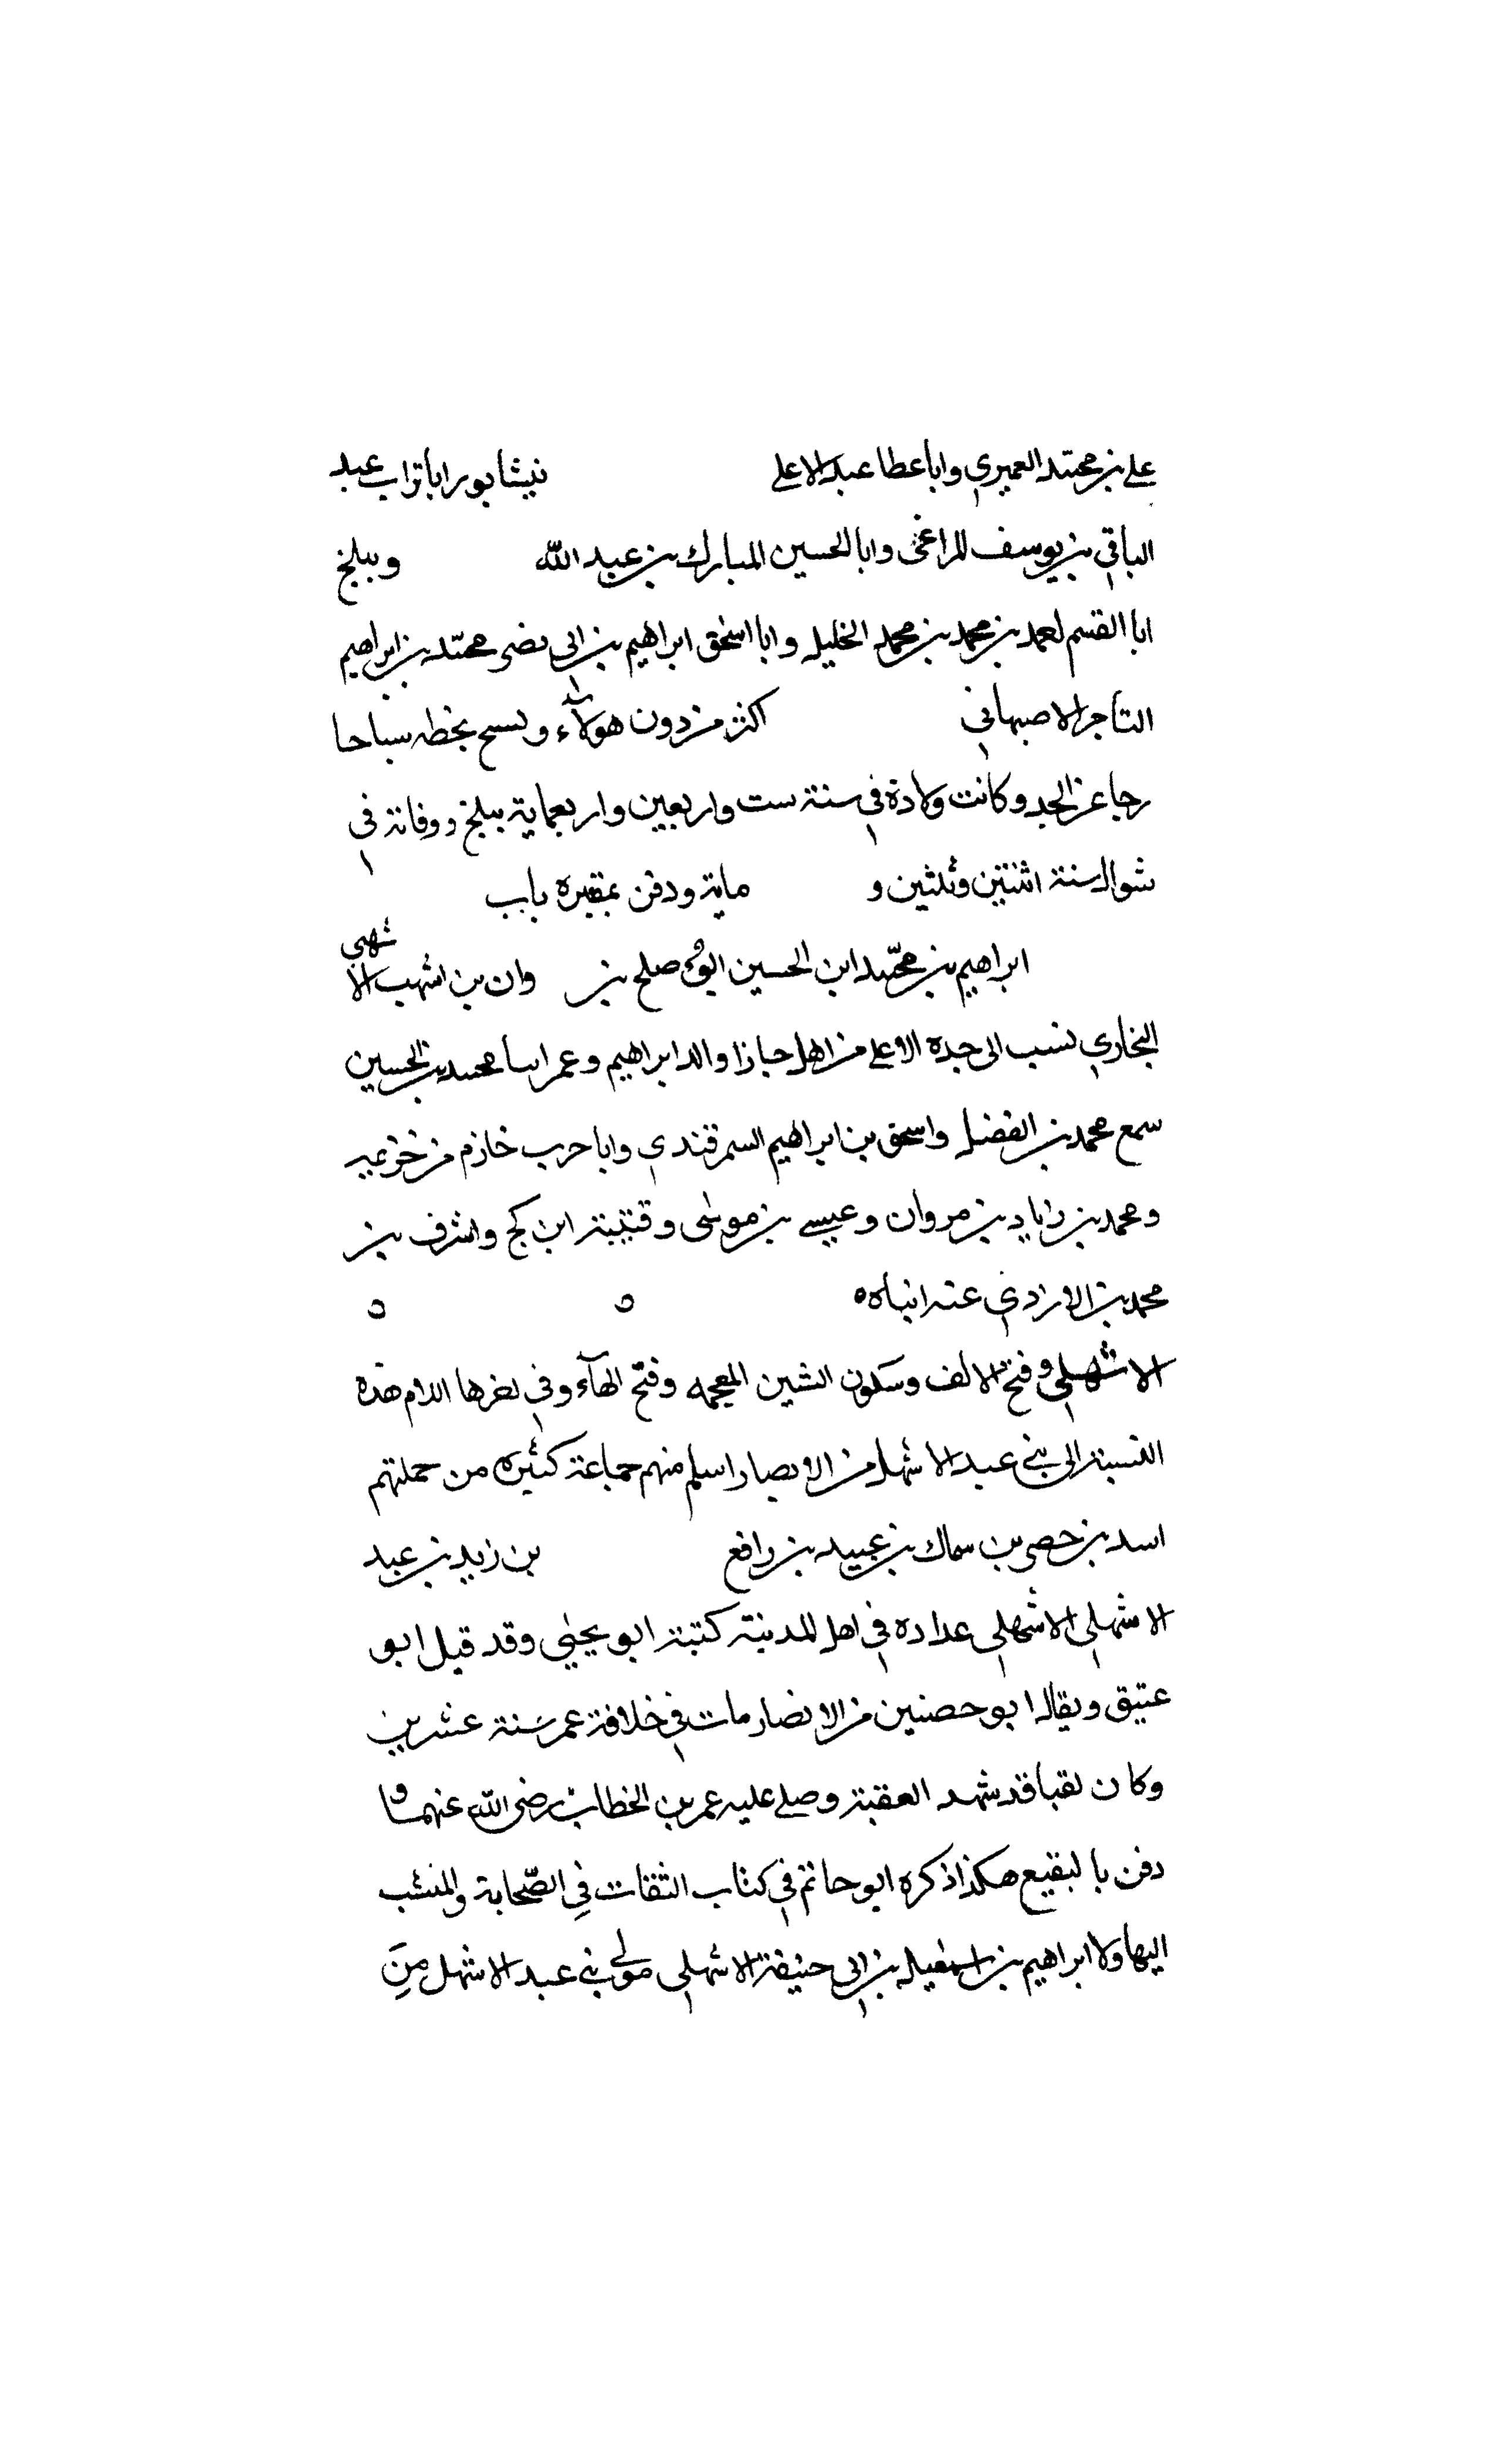 علي بن محمد العميري وابا عطا عبد الاعلى نيشابور ابا تراب عبد
الباقي بن يوسف المراغى وابا الحسين المبارك بن عبيد الله وببلخ
ابا القسم احمد بن محمد بن محمد الخليل وابا اسحق ابراهيم بن ابي نصر محمد بن ابراهيم
التاجر الاصبهاني اكثر من دون هولآء ونسخ بخطه
وكانت ولادته في سنة ست واربعين واربعماية ببلخ ووفاته في
شوال سنة اثنتين وثلثين و ماية ودفن بمقبره باب
ابراهيم بن محمد ابن الحسين ابو صلح بن وان بن اشهب الا شهبي
البخاري نسب الى جده الاعلى من اهل والد ابراهيم وعمر ابنا محمد بن الحسين
سمع محمد بن الفضل واسحق بن ابراهيم السمرقندي وابا حرب خازم
ومحمد بن زياد بن مروان وعيسى بن موسى وقتيبة ابن واشرف بن
محمد بن الازدي عنه ابناه ه ه ه
الاشهلي وفتح الالف وسكون الشين المعجمه وفتح الهآء وفي اخرها اللام هذه
النسبة الى بني عبد الاشهل من الانصار اسلم منهم جماعة كثيره من جملتهم
اسد بن حصى بن سماك بن عبيد بن رافع بن زيد بن عبد
الاشهلي الاشهلي عداده في اهل المدينة كنية ابو يحيى وقد قيل ابو
عتيق ويقال ابو حصنين من الانصار مات في خلافة عمر سنة عشرين
وكان نقيبا قد شهد العقبة وصلى عليه عمر بن الخطاب رضى الله عنهما و
دفن بالبقيع هكذا ذكره ابو حاتم في كتاب الثقات في الصحابة والمنتسب
اليها ولا ابراهيم بن اسمعيل بن ابي حنيفة الاشهلي مولى بني عبد الاشهل من